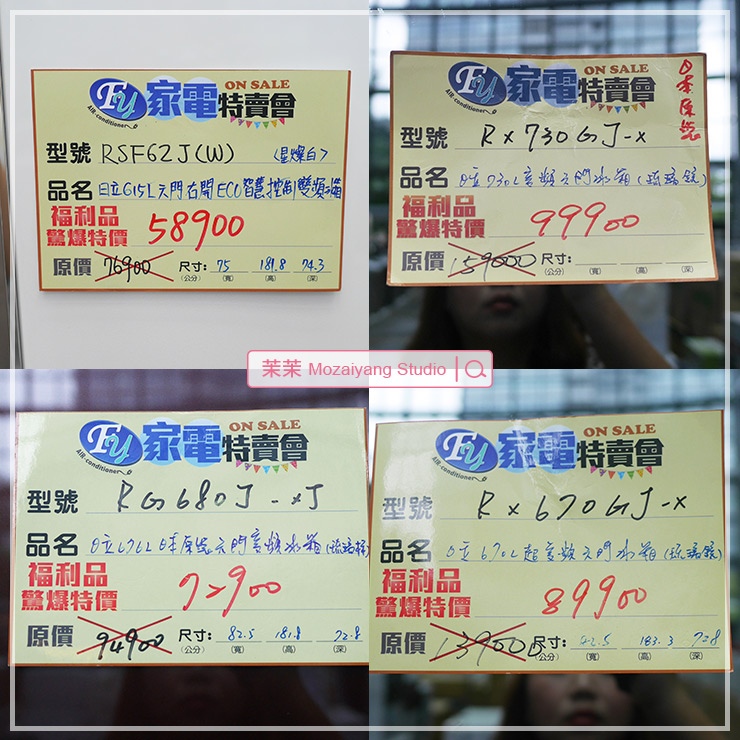 FY 家電特賣會 ON SALE
AIR-conditioner
型號 RSF62J(W) (星燦白)
品名 日立615L六門右開ECO智慧控制雙頻冰箱
福利品
驚爆特價 58900
原價 76900 尺寸: 75 181.8 74.3
(公分) (寬) (高) (深)
FY 家電特賣會 ON SALE
AIR-conditioner
日本原裝
型號 RX730GJ-X
品名 日立730L變頻六門冰箱(琉璃鏡)
福利品
驚爆特價 99900
原價 159000 尺寸:
(公分) (寬) (高) (深)
茉茉 Mozaiyang Studio
FY 家電特賣會 ON SALE
AIR-conditioner
型號 RG680J-XJ
品名 日立676L日本原裝六門變頻冰箱(琉璃鏡)
福利品
驚爆特價 72900
原價 94900 尺寸: 82.5 181.8 72.8
(公分) (寬) (高) (深)
FY 家電特賣會 ON SALE
AIR-conditioner
型號 RX670GJ-X
品名 日立670L超變頻六門冰箱(琉璃鏡)
福利品
驚爆特價 89900
原價 139000 尺寸: 82.5 183.3 72.8
(公分) (寬) (高) (深)